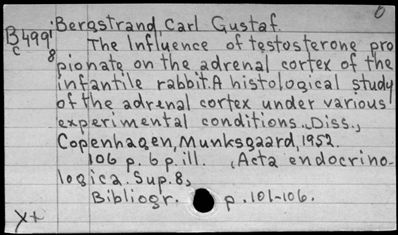 Bergstrand, Carl Gustaf.
B499
c 8
The Influence of testosterone pro
pionate on the adrenal cortex of the
infantile rabbit. A histological study
of the adrenal cortex under various
experimental conditions. Diss.,
Copenhagen, Munksgaard, 1952.
106 p. 6 p. ill. (Acta endocrino-
logica. Sup. 8,
Bibliogr. p. 101-106.